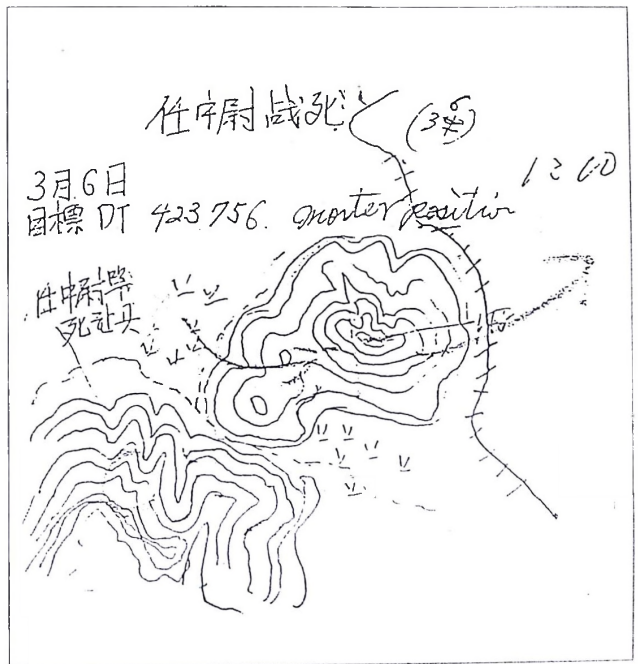 任中尉战死
1260
3月6日
目標 DT 423756. morter position
任中尉